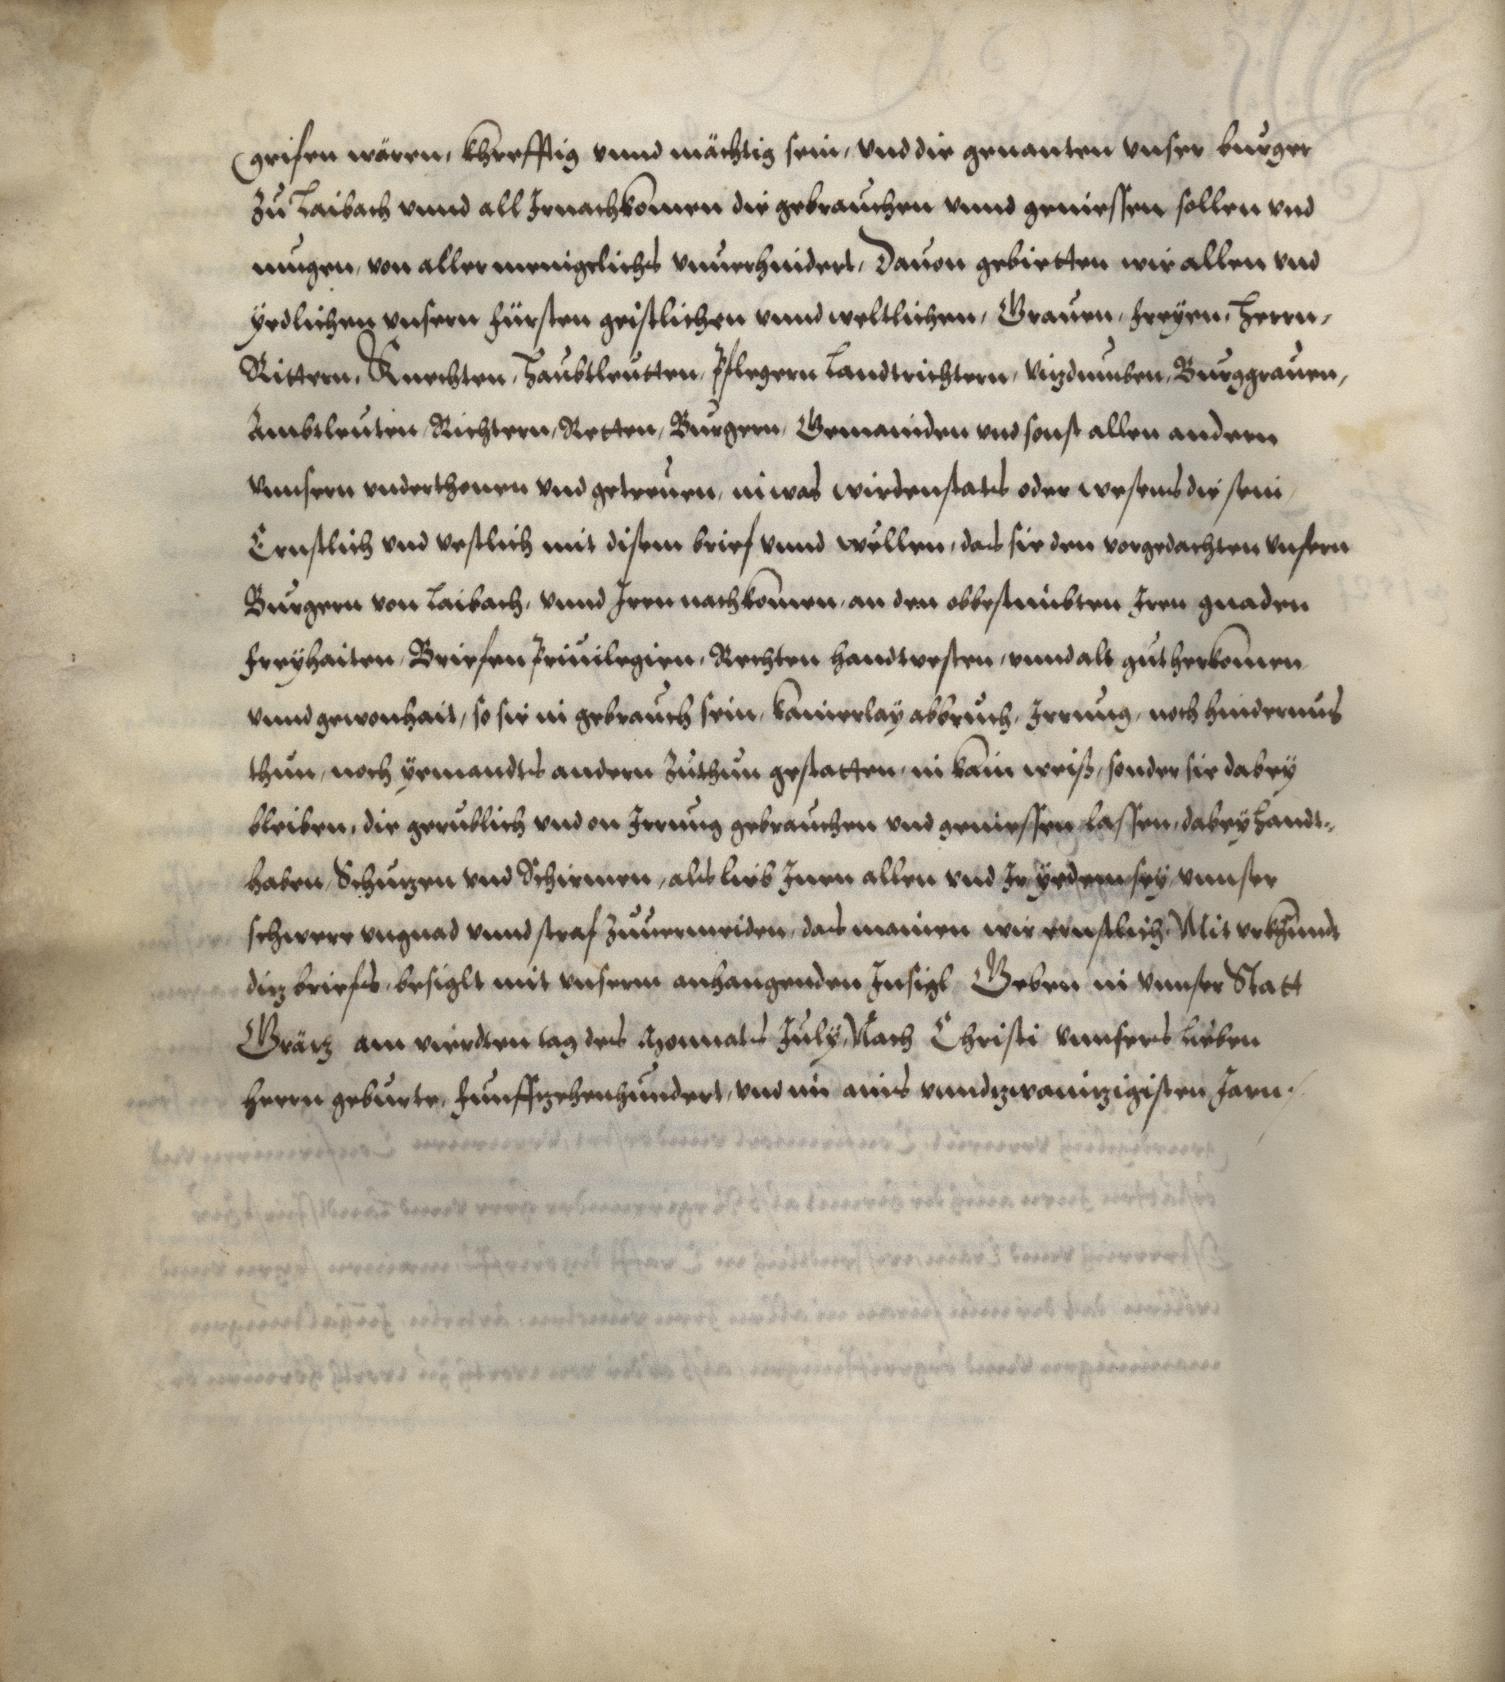 griffen wären, khrefftig vnnd mächtig sein, vnd die genanten vnser burger
zu Laibach vnnd all Ir nachkomen die gebrauchen vnnd geniessen sollen vnd
mugen, von aller menigelichs vnuerhindert, Dauon gebietten wir allen vnd
yedlichen vnsern fürsten geistlichen vnnd weltlichen, Grauen, freyen, Herrn,
Rittern, Knechten, Haubtleutten, Pflegern Landtrichtern, Vizdumben, Burggrauen,
Ambtleuten, Richtern, Retten, Burgern, Gemainden vnd sonst allen andern
vnnsern vnderthonen vnd getreuen, in was wirden stats oder wesens die sein,
Ernstlich vnd vestlich mit disem brief vnnd wellen, das sie den vorgedachten vnsern
Burgern von Laibach, vnnd Iren nachkomen, an den obbestimbten Iren gnaden
freyhaiten, Briefen Priuilegien, Rechten handtvesten, vnnd alt gut herkomen
vnnd gewonhait, so sie in gebrauch sein, kainerlay abbruch, Irrung, noch hindernus
thun, noch yemandts andern zuthun gestatten, in kain weiß, sonder sie dabey
bleiben, die gerublich vnd on Irrung gebrauchen vnd geniessen lassen, dabey handt=
haben, Schutzen vnd Schirmen, als lieb Inen allen vnd Ir yedem sey, vnnser
schwere vngnad vnnd straf zuuermeiden, das mainen wir ernstlich, Mit vrkhundt
ditz briefs, besiglt mit vnserm anhangenden Insigl Geben in vnnser Statt
Grätz am vierdten tag des Monnats July, Nach Christi vnnsers lieben
Herrn geburte, funffzehenhundert, vnd im ains vnndzwainzigisten Jarn.